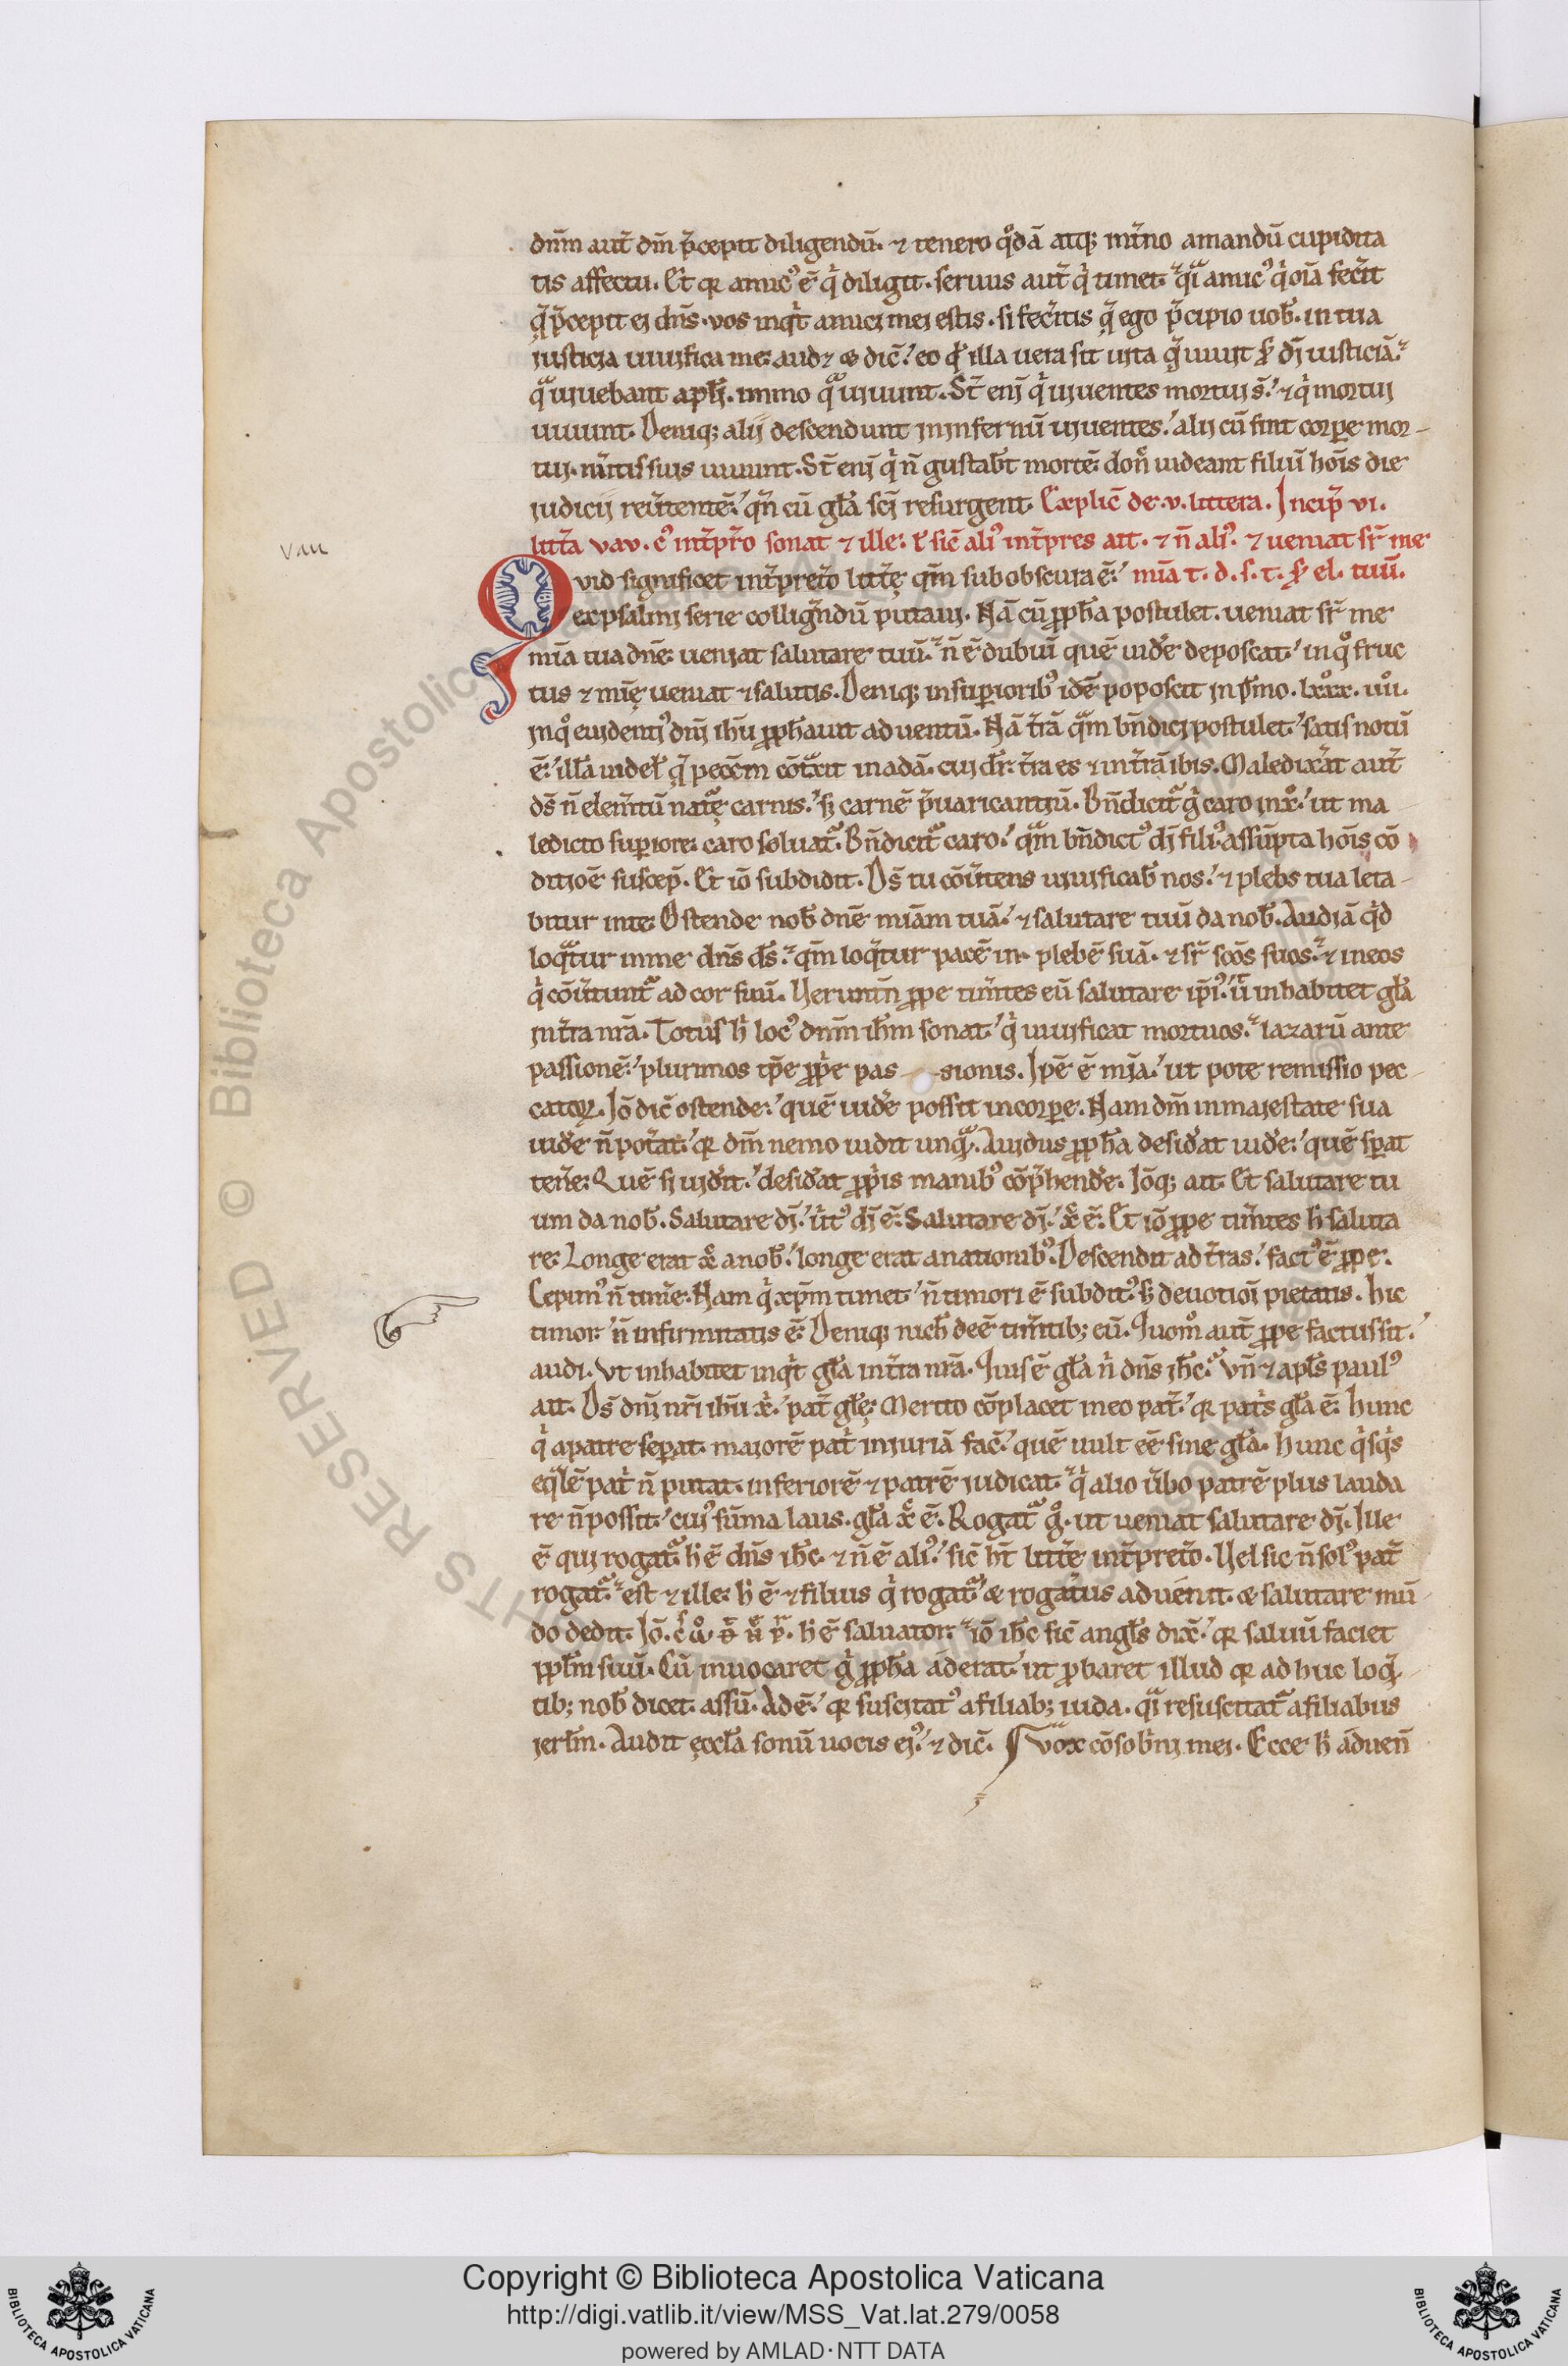 dn̄m aut̄ dm̄ p̄cepit diligendū. ⁊ tenero qͦdā atq; int̄no amandū cupidita
tis affectu. Et qꝛ amicꝰ ē qͥ diligit. seruus aut̄ qͥ timet. qͥa amicꝰ qͥ oīa fec̄it
q̄ p̄cepit ei dn̄s. vos inqͥt amici mei estis. si fec̄itis q̄ ego p̄cipio uob̄. in tua
iusticia uiuifica me. dic̄. eo qđ illa uera sit uita q̄ uiuit dī iusticiā.
qᵃ uiuebant apl̄i. immo qᵃ uiuunt. St̄ enī qͥ uiuentes mortui s̄. ⁊ qͥ mortui
uiuunt. Deniq; alii descendunt in infernū uiuentes. alii cū sint corꝑe mor-
tui. uiuunt. St̄ enī qͥ n̄ gustab̄t mortē. don̄ uideant filiū hoīs die
iudicii reūtentē. qn̄ cū gl̄a scī resurgent. Explic̄ de .v. littera. Incip̄ vi.
litt̄a vav. cꝰ int̄pr̄o sonat ⁊ ille. sic̄ aliꝰ int̄pres ait. ⁊ n̄ aliꝰ. ⁊ ueniat sr̄ me
vau
Qvid significet int̄preto litt̄ę qm̄ subobscura ē. mīa t. d. s. t. el. tuū.
ex psalmi serie collign̄dū putaui. Nā cū ꝓph̄a postulet. ueniat sr̄ me
mīa tua dn̄e. ueniat salutare tuū. n̄ ē dubiū quē uid̄e deposcat. in qͦ fruc
tus ⁊ mīę ueniat ⁊ salutis. Deniq; in suꝑioribꝰ idē poposcit in ps̄mo. lxxx. iiii.
in qͦ euidentiꝰ dn̄i ih̄u ꝓph̄auit aduentū. Nā t̄rā qᵃm bn̄dici postulet. satis notū
ē. illā uidel̄ q̄ pecc̄m cōtᵃxit in adā. cui dr̄. t̄ra es ⁊ in t̄rā ibis. Maledixͣat aut̄
ds̄ n̄ elem̄tū natᵃę carnis. sꝫ carnē p̄uaricantiū. Bn̄dicitᵃ gͥ caro in xͦ. ut ma
ledicto suꝑiore. caro soluatᵃ. Bn̄dicitᵃ caro. qᵃm bn̄dictꝰ dī filiꝰ. assūpta hoīs cō
ditioē suscep̄. Et iō subdidit. Ds̄ tu cōūtens uiuificab̄ nos. ⁊ plebs tua leta-
bitur in te. Ostende nob̄ dn̄e miām tuā. ⁊ salutare tuū da nob̄. Audiā qͥd
loqᵃtur in me dn̄s ds̄. qm̄ loqᵃtur pacē in plebē suā. ⁊ sr̄ scōs suos. ⁊ in eos
qͥ cōūtuntᵃ ad cor suū. Veruntn̄ ꝓpe tim̄tes eū salutare ip̄iꝰ. ut inhabitet gl̄a
in t̄ra nr̄a. Totus h̄ locꝰ dn̄m ih̄m sonat. qͥ uiuificat mortuos. lazarū ante
passionē. plurimos tp̄e ꝓp̄e pas-sionis. Ip̄e ē mīa. ut pote remissio pec-
catoꝝ. Iō dic̄ ostende. quē uid̄e possit in corꝑe. Nam dm̄ in maiestate sua
uid̄e n̄ pot̄at. qꝛ dm̄ nemo uidit unqᵃ. Auidus ꝓph̄a desid̄at uid̄e. quē sꝑat
ten̄e. Quē si uid̄it. desid̄at ꝓpͥis manibꝰ cōp̄hend̄e. Iōq; ait. Et salutare tu
um da nob̄. Salutare dī. dī ē. Salutare dī. xͨ ē. Et iō ꝓpe tim̄tes h̄ saluta
re. Longe erat xͨ a nob̄. longe erat a nationibꝰ. Descendit ad t̄ras. factꝰ ē ꝓpe.
Cepimꝰ n̄ tim̄e. Nam qͥ xp̄m timet. n̄ timori ē subditꝰ. sꝫ deuotiōi pietatis. hic
timor. n̄ infirmitatis ē. Deniq; nich̄ deē tim̄tib; eū. Quomͦ aut̄ ꝓpe factus sit.
audi. Vt inhabitet inqͥt gl̄a in t̄ra nr̄a. ē gl̄a n̄ dn̄s ih̄c. vn̄ ⁊ apl̄s paulꝰ
ait. Ds̄ dn̄i nr̄i ih̄u xͥ. pat̄ gl̄ę. Merito cōplacet in eo pat̄. qꝛ patͥs gl̄a ē. hunc
qͥ a patre seꝑat. maiorē patͥ iniuriā fac̄. quē uult eē sine gl̄a. hunc qͥsqͥs
eqᵃlē patͥ n̄ putat. inferiorē ⁊ patrē iudicat. qͥ alio ūbo patrē plus lauda
re n̄ possit. cuiꝰ sūma laus. gl̄a xͨ ē. Rogatᵃ gͦ. ut ueniat salutare dī. Ille
ē qui rogatᵃ. h̄ ē dn̄s ih̄c. ⁊ n̄ ē aliꝰ. sic̄ h̄t litt̄e int̄preto. Vel sic n̄ solꝰ pat̄
rogatᵃ. est ⁊ ille. h̄ ē ⁊ filius qͥ rogatᵃ. & rogatus aduenit. & salutare mū
do dedit. Iō. h̄ ē saluator. iō ih̄c sic̄ angl̄s dix̄. qꝛ saluū faciet
ꝓpl̄m suū. Cū inuocaret gͥ ꝓph̄a aderat. ut probaret illud qꝛ adhuc loqᵃ-
tib; nob̄ dicet. assū. Adē. qꝛ suscitatꝰ a filiab; iuda. qᵃ resuscitatᵃ a filiabus
ierl̄m. Audit eccl̄a sonū uocis eiꝰ. ⁊ dic̄. Vox cōsobͥni mei. Ecce h̄ aduen̄
Copyright © Biblioteca Apostolica Vaticana
http://digi.vatlib.it/view/MSS_Vat.lat.279/0058
powered by AMLAD·NTT DATA
BIBLIOTECA APOSTOLICA VATICANA
BIBLIOTECA APOSTOLICA VATICANA